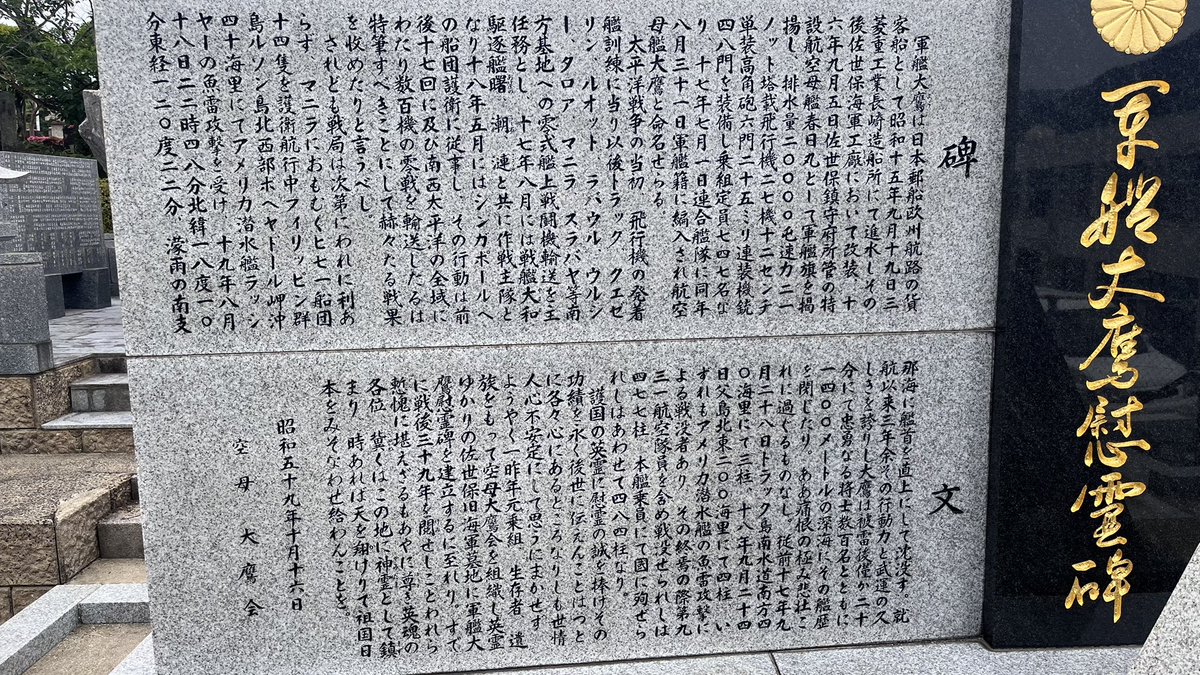 軍艦大鷹慰霊碑
碑
軍艦大鷹は日本郵船欧州航路の貨
客船として昭和十五年九月十九日三
菱重工業長崎造船所にて進水しその
後佐世保海軍工廠において改装、十
六年九月五日佐世保鎮守府所管の特
設航空母艦春日丸として軍艦旗を掲
揚し、排水量二〇〇〇〇屯速力二一
ノット塔載飛行機二七機十二センチ
単装高角砲六門二十五ミリ連装機銃
四八門を装備し乗組定員七四七名な
り、十七年七月一日連合艦隊に同年
八月三十一日軍艦籍に編入され航空
母艦大鷹と命名せらる
太平洋戦争の当初 飛行機の発着
艦訓練に当り以後トラック クェゼ
リン、ルオット、ラバウル ウルシ
ー、タロア マニラ スラバヤ等南
方基地への零式艦上戦闘機輸送を主
任務とし、十七年八月には戦艦大和
駆逐艦曙 潮 漣と共に作戦主隊と
なり十八年五月にはシンガポールへ
の船団護衛に従事し その行動は前
後十七回に及び南西太平洋の全域に
わたり数百機の零戦を輸送したるは
特筆すべきことにして赫々たる戦果
を収めたりと言うべし
されども戦局は次第にわれに利あ
らず、マニラにおもむくヒ七一船団
十四隻を護衛航行中フィリッピン群
島ルソン島北西部ボヘヤトール岬沖
四十海里にてアメリカ潜水艦ラッシ
ャーの魚雷攻撃を受け、十九年八月
十八日二二時四八分北緯一八度一〇
分東経一二〇度二二分 濛雨の南支
文
那海に艦首を直上にして沈没す 就
航以来三年余その行動力と武運の久
しきを誇りし大鷹は被雷後僅か二十
分にて忠勇なる将士数百名とともに
一四〇〇メートルの深海にその艦歴
を閉じたり。ああ痛恨の極み悲壮こ
れに過ぐるものなし。従前十七年九
月二十八日トラック島南水道南方四
〇海里にて三柱、十八年九月二十四
日父島北東二〇〇海里にて四柱 い
ずれもアメリカ潜水艦の魚雷攻撃に
よる戦没者あり。その終焉の際第九
三一航空隊員を含め戦没せられしは
四七七柱、本艦乗員にて國に殉ぜら
れしはあわせて四八四柱なり。
護国の英霊に慰霊の誠を捧げその
功績を永く後世に伝えんことはつと
に各々心にあるところなりしも世情
人心不安定にして思うにまかせず
ようやく一昨年元乗組 生存者 遺
族をもって空母大鷹会を組織し英霊
ゆかりの佐世保旧海軍墓地に軍艦大
鷹慰霊碑を建立するに至れり。すで
に戦後三十九年を閲せしことわれら
慙愧に堪えざるもあやに尊き英魂の
各位 冀くはこの地に神霊として鎮
まり 時あれば天を翔けりて祖国日
本をみそなわせ給わんことを。
昭和五十九年十月十六日
空母 大鷹会